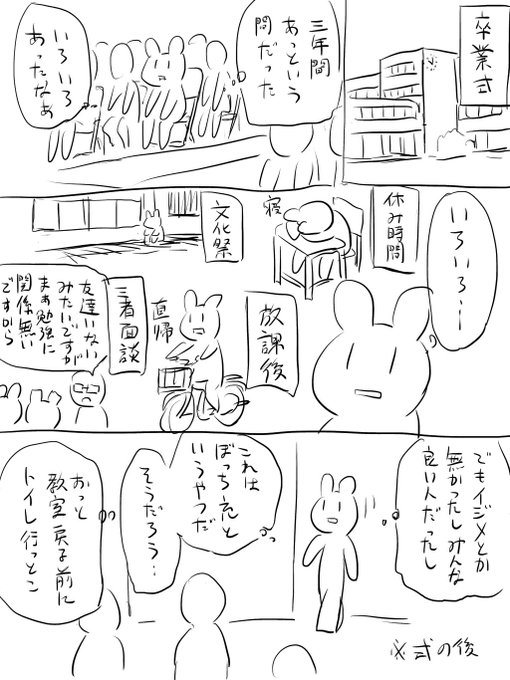 卒業式
三年間
あっという
間だった
いろいろ
あったなぁ
いろいろ…
休み時間
寝
文化祭
放課後
直帰
三者面談
友達いない
みたいですが
まぁ勉強に
関係無い
ですから
でもイジメとか
無かったしみんな
良い人だったし
※式の後
これは
ぼっちだと
いうやつだ
そうだろう…
おっと
教室戻る前に
トイレ行っとこ